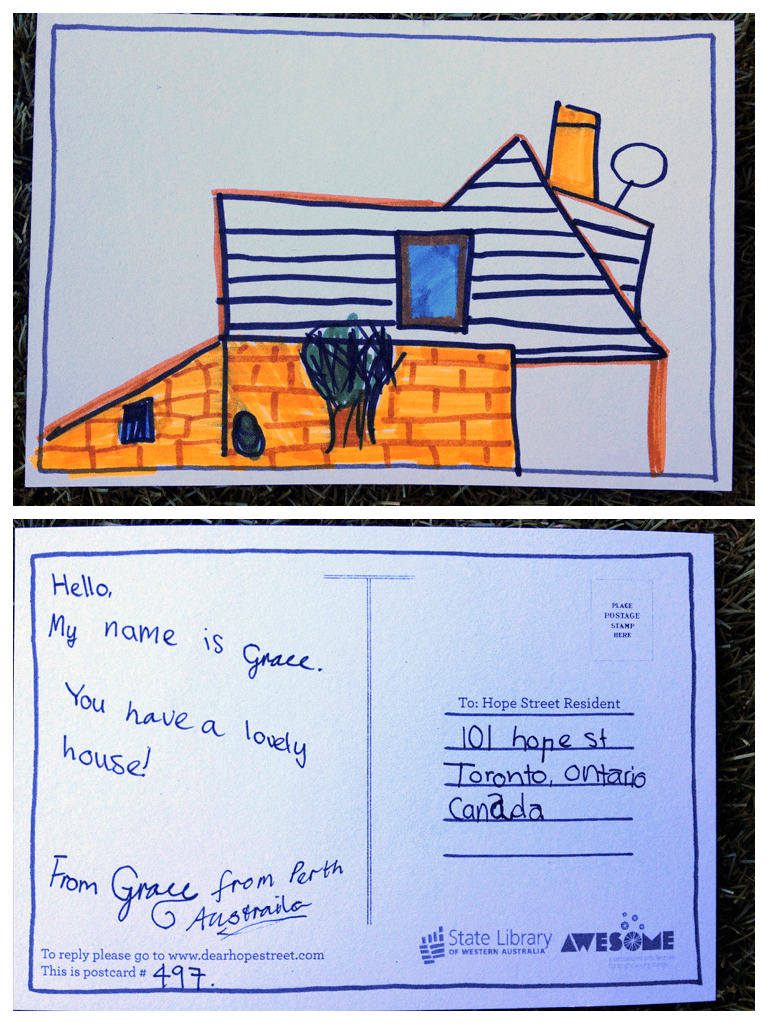 Hello,
My name is Grace.
You have a lovely
house!
From Grace from Perth
Austraila
To reply please go to www.dearhopestreet.com
This is postcard # 497.
PLACE
POSTAGE
STAMP
HERE
To: Hope Street Resident
101 hope st
Toronto, ontario
Canada
State Library
OF WESTERN AUSTRALIA
AWESOME